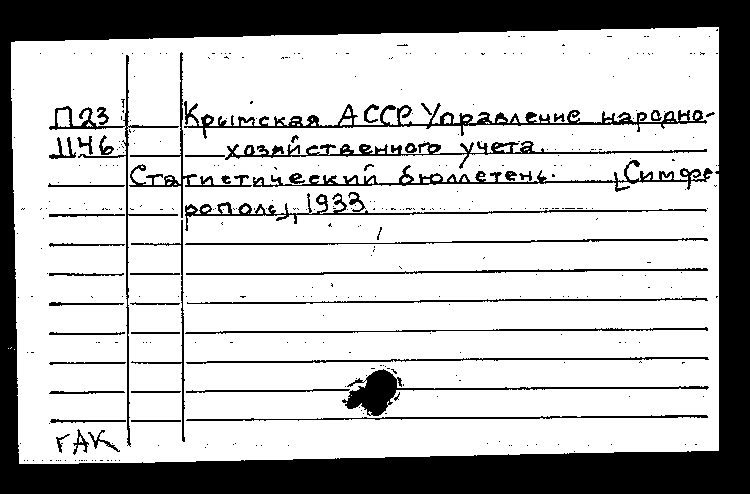 П23 Крымская АССР. Управление народно-
1146 хозяйственного учета.
Статистический бюллетень. [Симфе-
рополь], 1933.
ГАК